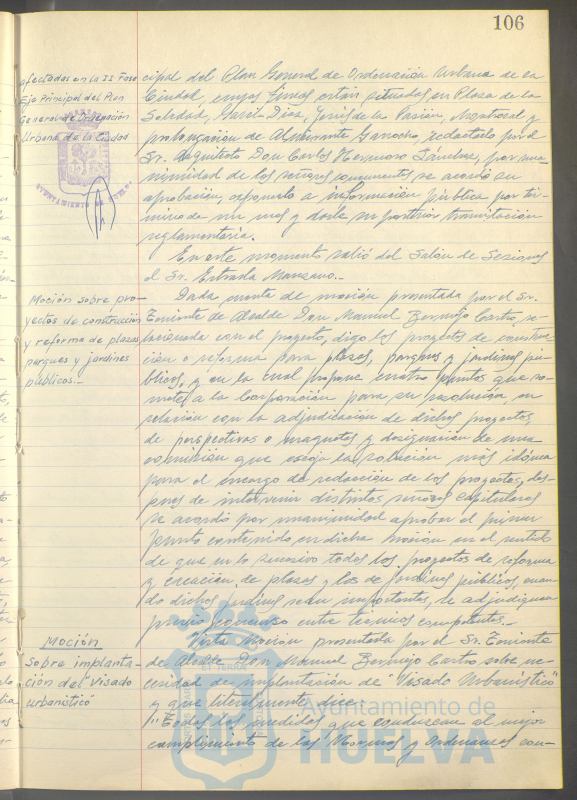 106
afectadas en la II Fase
Eje Principal del Plan
General de Ordenación
Urbana de la Ciudad
cipal del Plan General de Ordenación Urbana de la
Ciudad, cuyas fincas están situadas en Plaza de la
Soledad, Garci-Díaz, Jesús de la Pasión, Montrocal y
prolongación de Almirante Garrocho, redactado por el
Sr. Arquitecto Don Carlos Hermoso Sánchez, por una-
nimidad de los señores concurrentes se acordó su
aprobación, exponerlo a información pública por tér-
mino de un mes y darle su posterior tramitación
reglamentaria.
En este momento salió del Salón de Sesiones
el Sr. Estrada Manzano.-
Moción sobre pro-
yectos de construcción
y reforma de plazas
parques y jardines
públicos.-
Dada cuenta de moción presentada por el Sr.
Teniente de Alcalde Don Manuel Bermejo Castro, re-
lacionada con el proyecto, digo los proyectos de construc-
ción o reforma para plazas, parques y jardines pú-
blicos, y en la cual propone cuatro puntos que so-
mete a la Corporación para su resolución en
relación con la adjudicación de dichos proyectos,
de perspectivas o maquetas y designación de una
comisión que escoja la solución más idónea
para el encargo de redacción de los proyectos, des-
pués de intervenir distintos señores capitulares
se acordó por unanimidad aprobar el primer
punto contenido en dicha moción en el sentido
de que en lo sucesivo todos los proyectos de reforma
y creación, de plazas y los de jardines públicos, cuan-
do dichos jardines sean importantes, se adjudiquen
previo concurso entre técnicos competentes.-
Moción
sobre implanta-
ción del visado
urbanístico
Vista Moción presentada por el Sr. Teniente
de Alcalde Don Manuel Bermejo Castro sobre ne-
cesidad de implantación de "Visado Urbanístico"
y que literalmente dice:
"Todas las medidas que conduzcan al mejor
cumplimiento de las Normas y Ordenanzas con-
Ayuntamiento de
HUELVA